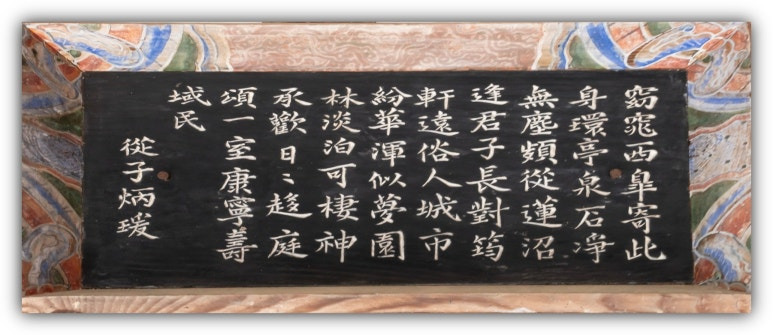 窈窕西皐寄此
身環亭泉石淨
無塵頻從蓮沼
逢君子長對筠
軒遠俗人城市
紛華渾似夢園
林淡泊可棲神
承歡日〻趍庭
頌一室康寧壽
域民
從子炳瑗